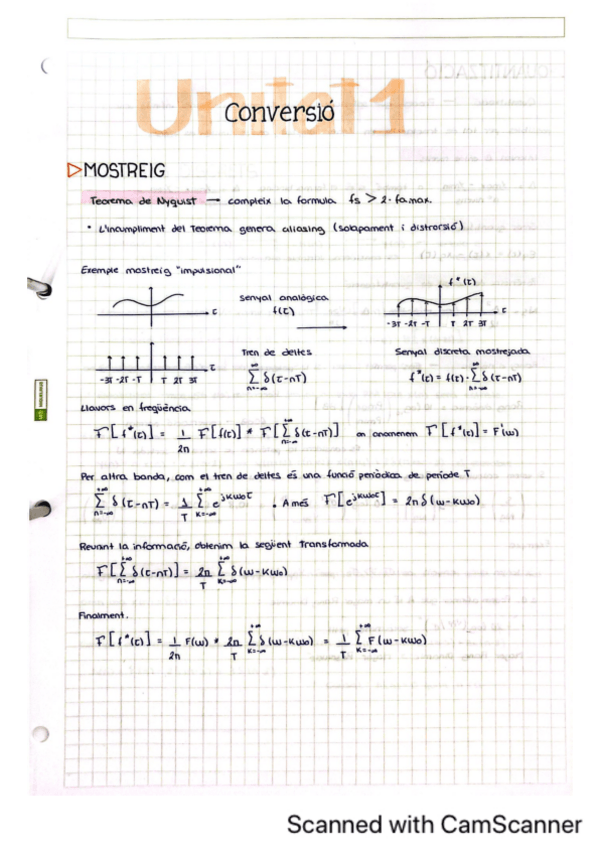 Unitat 1
Conversió
MOSTREIG
Teorema de Nyquist → compleix la formula fs > 2·famax.
* L'incumpliment del Teorema genera aliasing (solapament i distrorsió)
Exemple mostreig "impulsional"
f*(t)
t
senyal analògica
f(t)
t
-3T -2T -T T 2T 3T
Tren de deltes
Senyal discreta mostrejada
t
-3T -2T -T T 2T 3T
∑_{n=-∞}^{+∞} δ(t-nT)
f*(t) = f(t)·∑_{n=-∞}^{+∞} δ(t-nT)
Llavors en freqüència
F[f*(t)] = 1/2π F[f(t)] * F[∑_{n=-∞}^{+∞} δ(t-nT)] on anomenem F[f*(t)] = F'(ω)
Per altra banda, com el tren de deltes és una funció periòdica de període T
∑_{n=-∞}^{+∞} δ(t-nT) = 1/T ∑_{K=-∞}^{+∞} e^{jKω₀t} . A més F[e^{jKω₀t}] = 2π δ(ω-Kω₀)
Reunint la informació, obtenim la següent Transformada
F[∑_{n=-∞}^{+∞} δ(t-nT)] = 2π/T ∑_{K=-∞}^{+∞} δ(ω-Kω₀)
Finalment.
F[f*(t)] = 1/2π F(ω) * 2π/T ∑_{K=-∞}^{+∞} δ(ω-Kω₀) = 1/T ∑_{K=-∞}^{+∞} F(ω-Kω₀)
Scanned with CamScanner